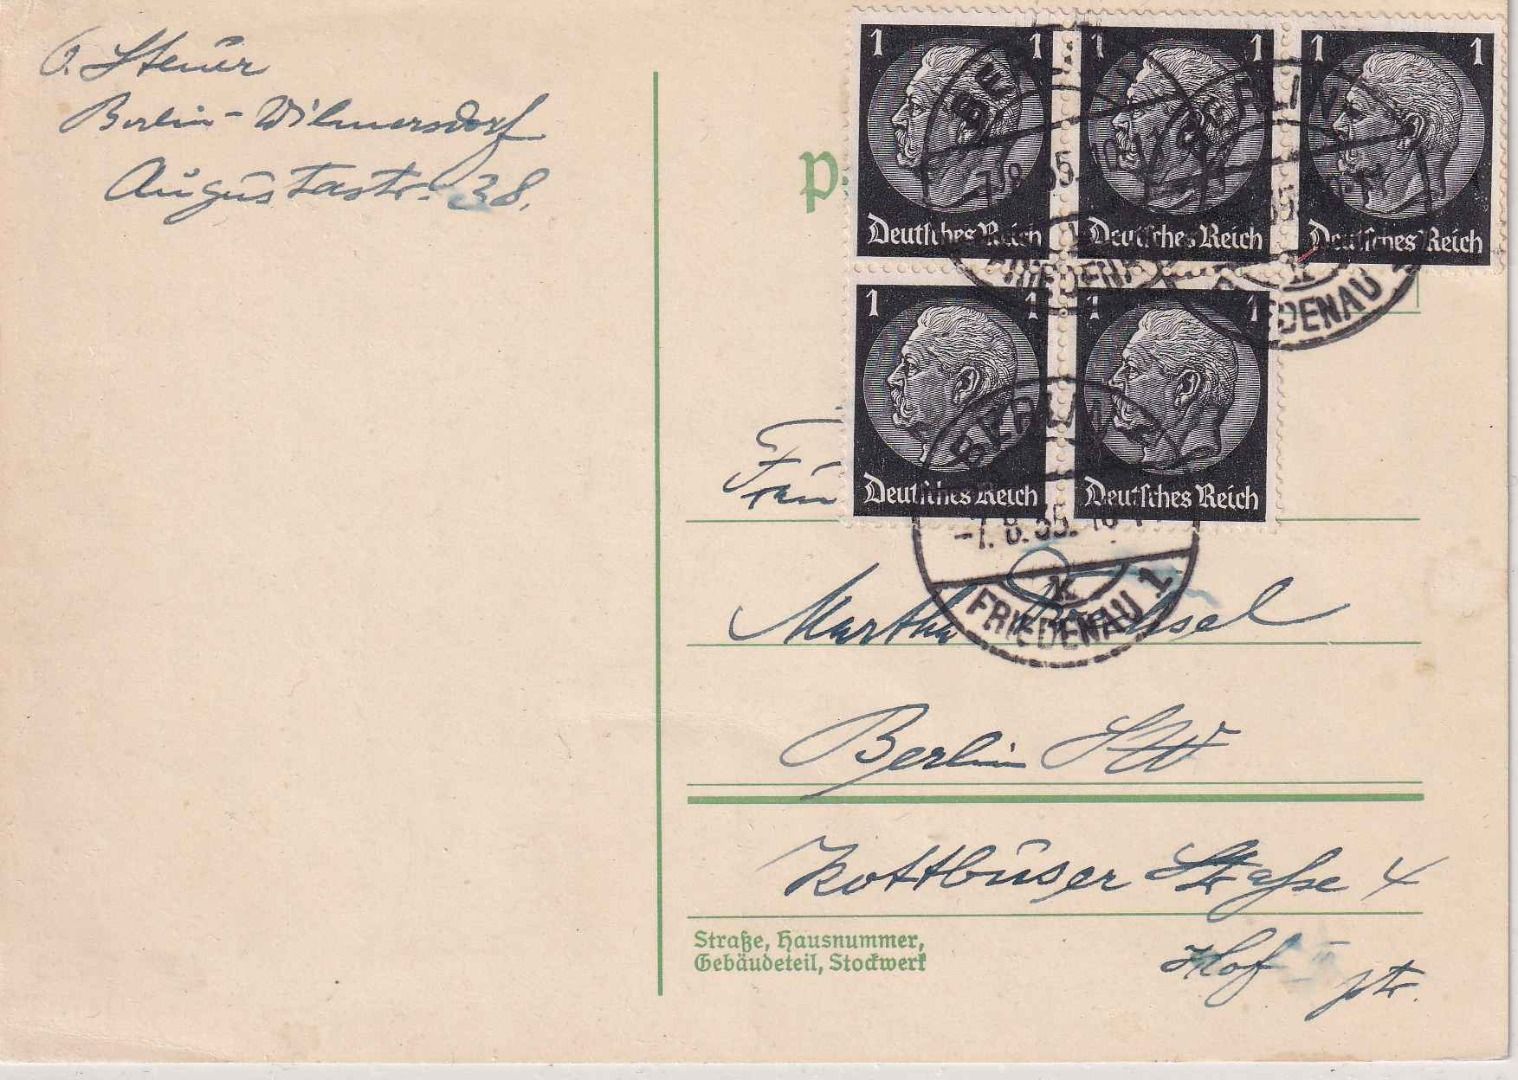 Steuer
Berlin-Wilmersdorf
Augustastr. 38.
P
1 1 1 1 1 1
Deutsches Reich Deutsches Reich Deutsches Reich
1 1 1 1
Deutsches Reich Deutsches Reich
BERLIN
FRIEDENAU
BERLIN
FRIEDENAU 1
BERLIN
-7.8.35.
k
FRIEDENAU 1
Martha
Berlin SW
Kottbuser Straße 4
Straße, Hausnummer,
Gebäudeteil, Stockwerk
Hof ptr.